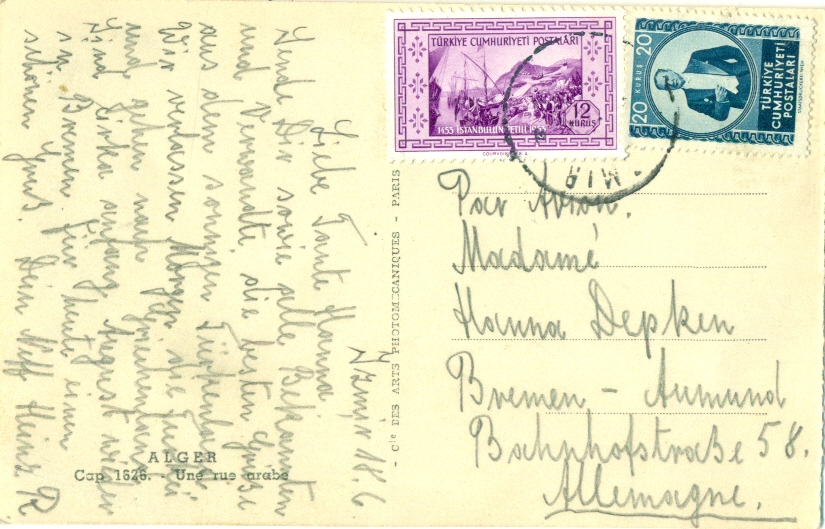 Izmir 18.6.
Liebe Tante Hanna
Sende Dir sowie alle Bekannten
und Verwandte die besten Grüße
aus dem sonnigen Türkenland
Wir verlassen Morgen die Türkei
und gehen nach Griechenland
Sind zirka anfang August wieder
in Bremen für heute einen
schönen Gruß. Dein Neff Heinz R
ALGER
Cap 1626. - Une rue arabe
- Cie DES ARTS PHOTOMECANIQUES - PARIS
TÜRKİYE CUMHURİYETİ POSTALARI
12
KURUŞ
1453 İSTANBULUN FETHİ
COURVOISIER
20 KURUŞ 20
TÜRKİYE
CUMHURİYETİ
POSTALARI
Par Avion.
Madame
Hanna Depken
Bremen - Aumund
Bahnhofstraße 58.
Allemagne.